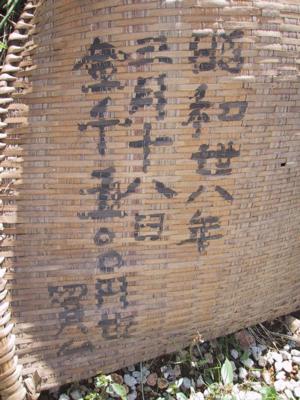 昭和卅八年
三月十八日
金千五〇〇円也
買